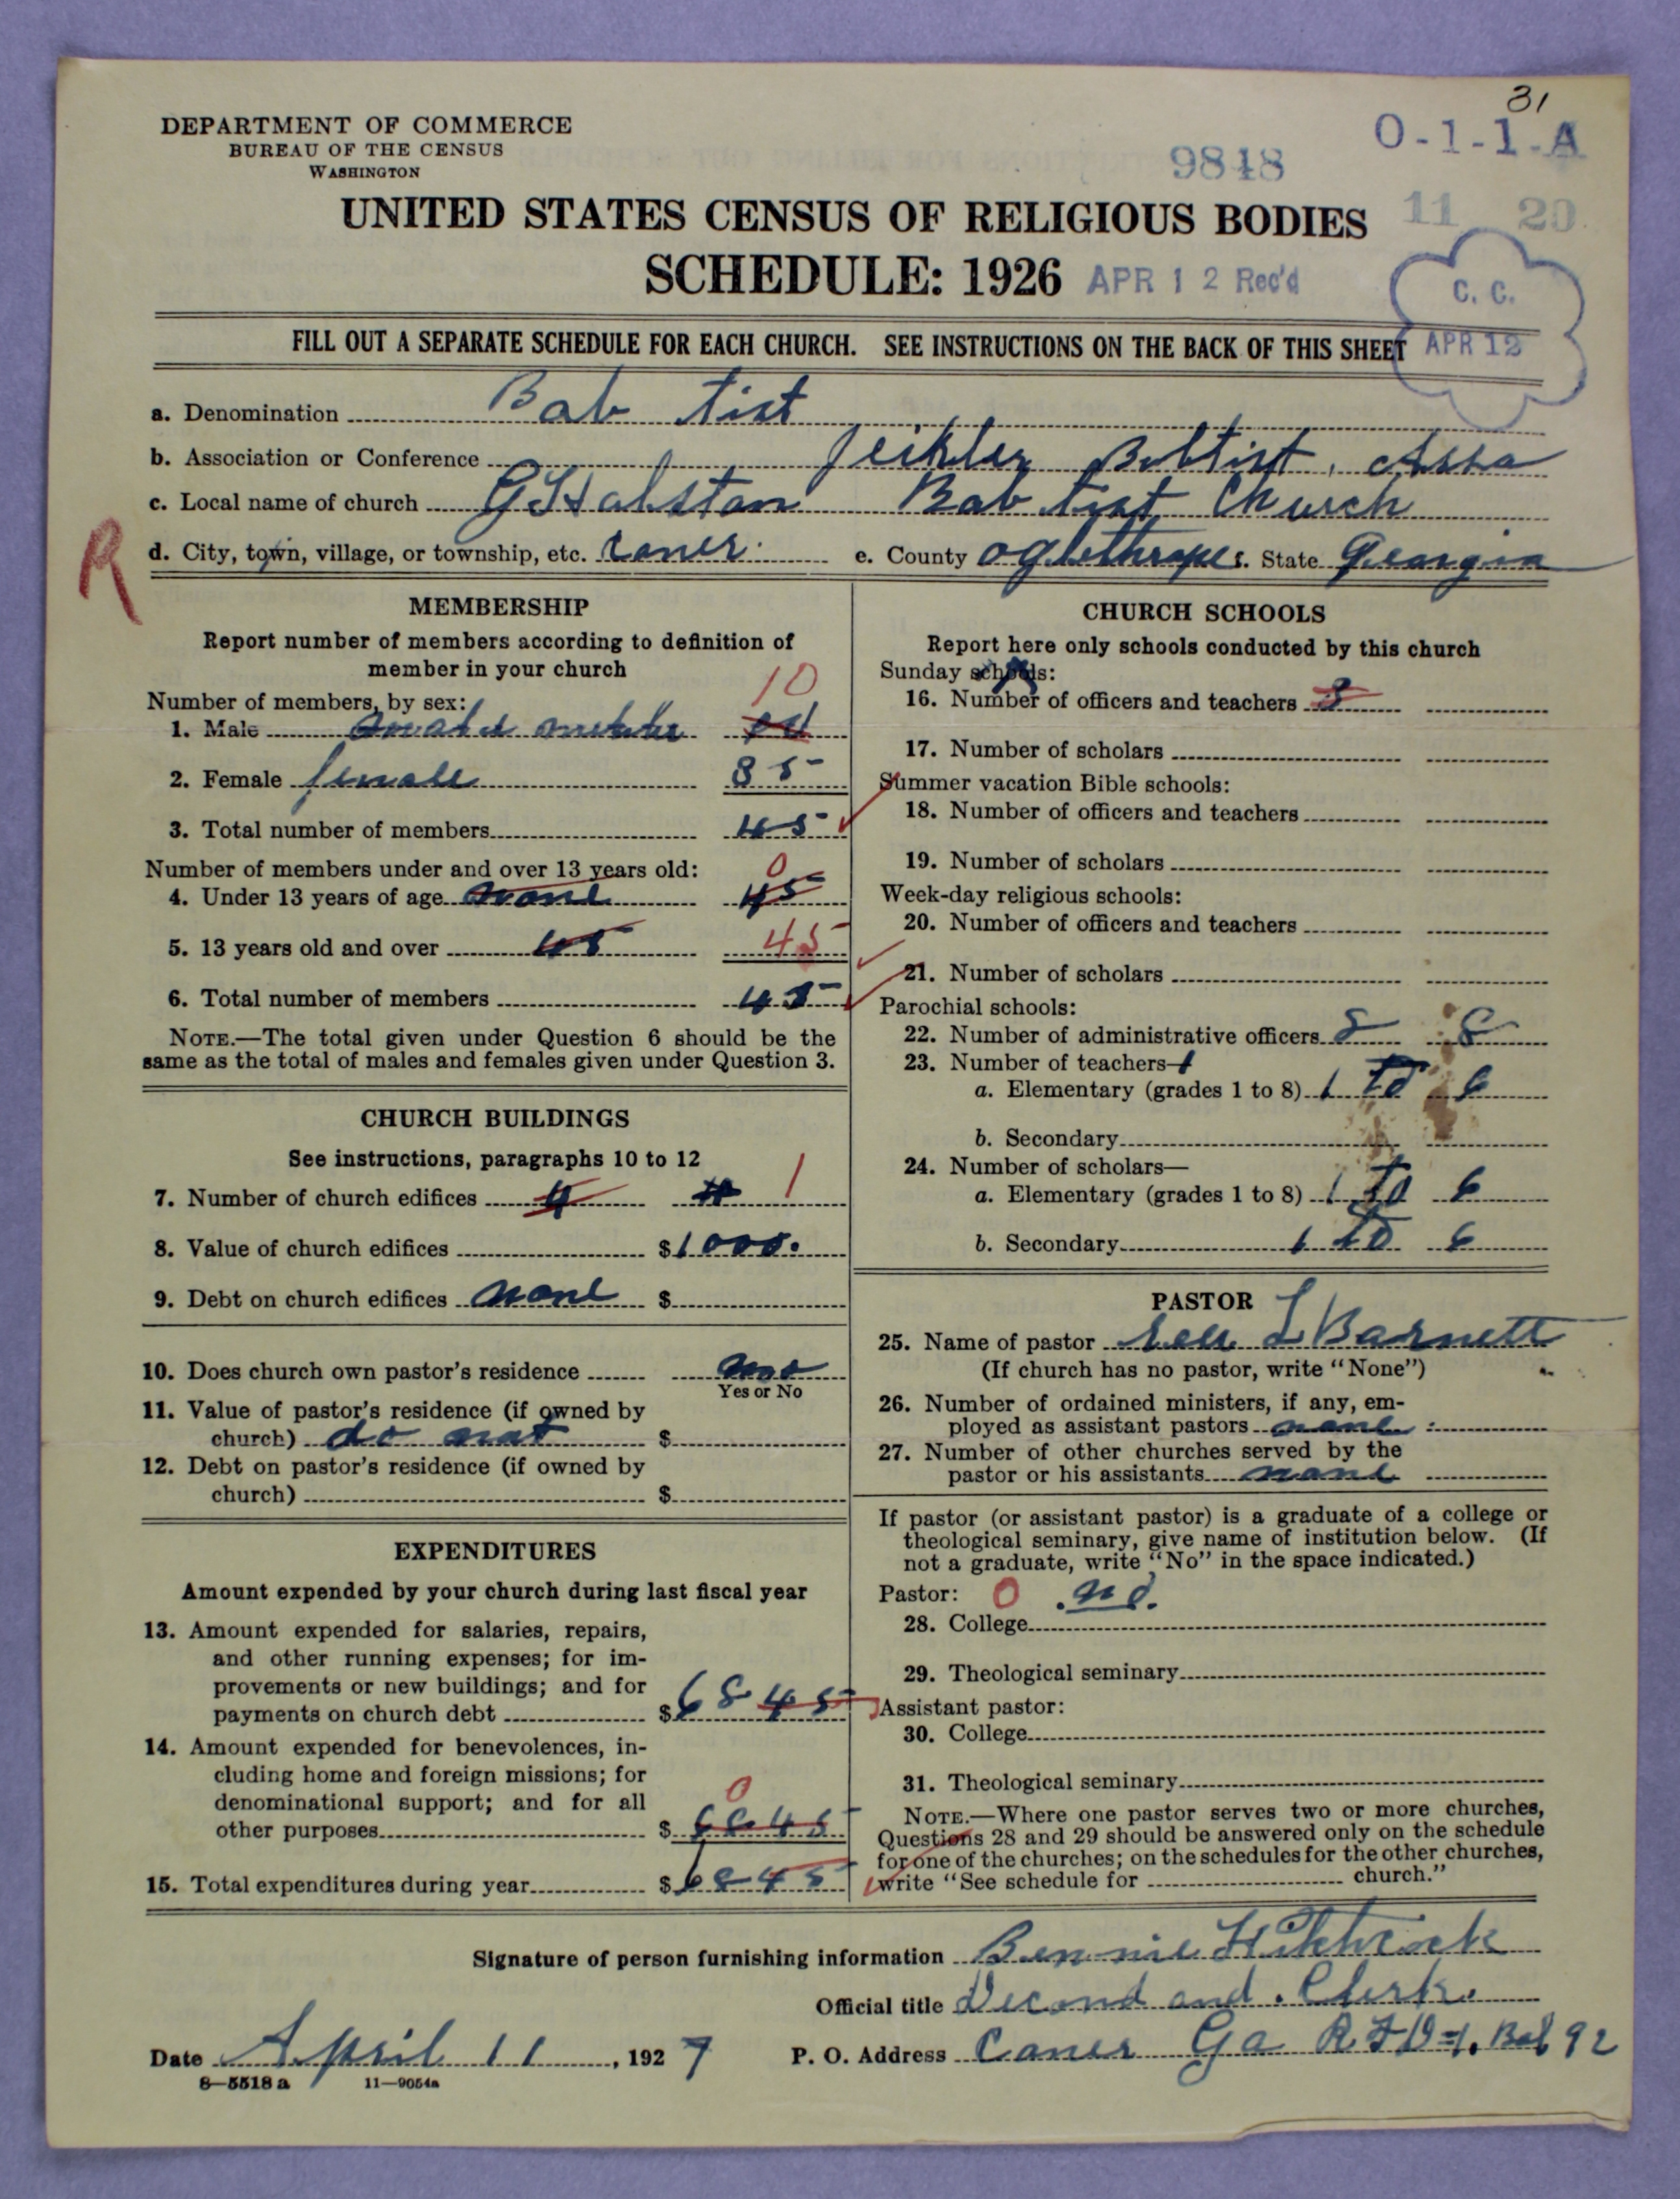 31
DEPARTMENT OF COMMERCE
BUREAU OF THE CENSUS
WASHINGTON
9848
O-1-1-A
11 20
UNITED STATES CENSUS OF RELIGIOUS BODIES
SCHEDULE: 1926 APR 12 Rec'd
C. C.
APR 12
FILL OUT A SEPARATE SCHEDULE FOR EACH CHURCH. SEE INSTRUCTIONS ON THE BACK OF THIS SHEET
a. Denomination Bab tist
b. Association or Conference Assa
c. Local name of church Bab tist Church
R
d. City, town, village, or township, etc. Caner. e. County oglethrope f. State Georgia
MEMBERSHIP
Report number of members according to definition of
member in your church
Number of members, by sex: 10
1. Male
2. Female female 35
3. Total number of members 45
Number of members under and over 13 years old: 0
4. Under 13 years of age none 45
5. 13 years old and over 45 45
6. Total number of members 45
NOTE.—The total given under Question 6 should be the
same as the total of males and females given under Question 3.
CHURCH BUILDINGS
See instructions, paragraphs 10 to 12
7. Number of church edifices 4 1
8. Value of church edifices $1000.
9. Debt on church edifices none $
10. Does church own pastor's residence no
Yes or No
11. Value of pastor's residence (if owned by
church) do not $
12. Debt on pastor's residence (if owned by
church) $
EXPENDITURES
Amount expended by your church during last fiscal year
13. Amount expended for salaries, repairs,
and other running expenses; for im-
provements or new buildings; and for
payments on church debt $68 45
14. Amount expended for benevolences, in-
cluding home and foreign missions; for
denominational support; and for all 0
other purposes $68 45
15. Total expenditures during year $68 45
CHURCH SCHOOLS
Report here only schools conducted by this church
Sunday schools:
16. Number of officers and teachers 3
17. Number of scholars
Summer vacation Bible schools:
18. Number of officers and teachers
19. Number of scholars
Week-day religious schools:
20. Number of officers and teachers
21. Number of scholars
Parochial schools:
22. Number of administrative officers 8 8
23. Number of teachers—
a. Elementary (grades 1 to 8) 1 to 6
b. Secondary
24. Number of scholars—
a. Elementary (grades 1 to 8) 1 to 6
b. Secondary 1 to 6
PASTOR
25. Name of pastor L Barnett
(If church has no pastor, write "None")
26. Number of ordained ministers, if any, em-
ployed as assistant pastors none
27. Number of other churches served by the
pastor or his assistants none
If pastor (or assistant pastor) is a graduate of a college or
theological seminary, give name of institution below. (If
not a graduate, write "No" in the space indicated.)
Pastor: 0 no.
28. College
29. Theological seminary
Assistant pastor:
30. College
31. Theological seminary
NOTE.—Where one pastor serves two or more churches,
Questions 28 and 29 should be answered only on the schedule
for one of the churches; on the schedules for the other churches,
write "See schedule for church."
Signature of person furnishing information Bennie
Official title Second and. Clerk.
Date April 11, 1927 P. O. Address Caner Ga R.F.D #1. Box 92
8—5518 a 11—9054a